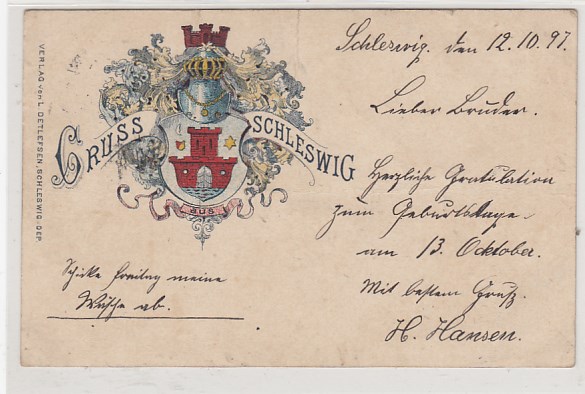 VERLAG von L. DETLEFSEN, SCHLESWIG. DEP.
GRUSS
AUS
SCHLESWIG
Schleswig, den 12.10.97.
Lieber Bruder.
Herzliche Gratulation
zum Geburtstage
am 13. October.
Mit bestem Gruß.
H. Hansen.
Schicke Freitag meine
Wäsche ab.